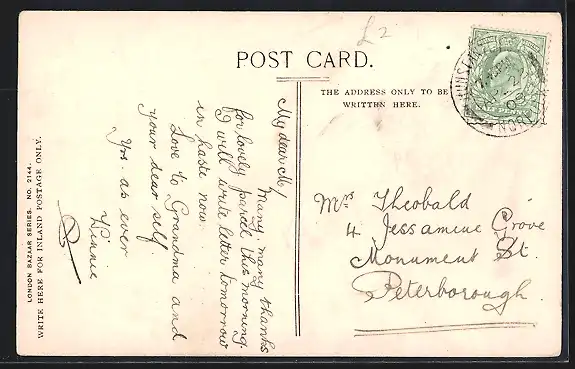 £2
POST CARD.
THE ADDRESS ONLY TO BE
WRITTEN HERE.
LONDON BAZAAR SERIES. NO. 2144.
WRITE HERE FOR INLAND POSTAGE ONLY.
My dear M/
Many, many thanks
for lovely parcel this morning.
I will write letter tomorrow
in haste now.
Love to Grandma and
your dear self
Yrs. as ever
Winnie
Mrs Theobald
4 Jessamine Grove
Monument St.
Peterborough.